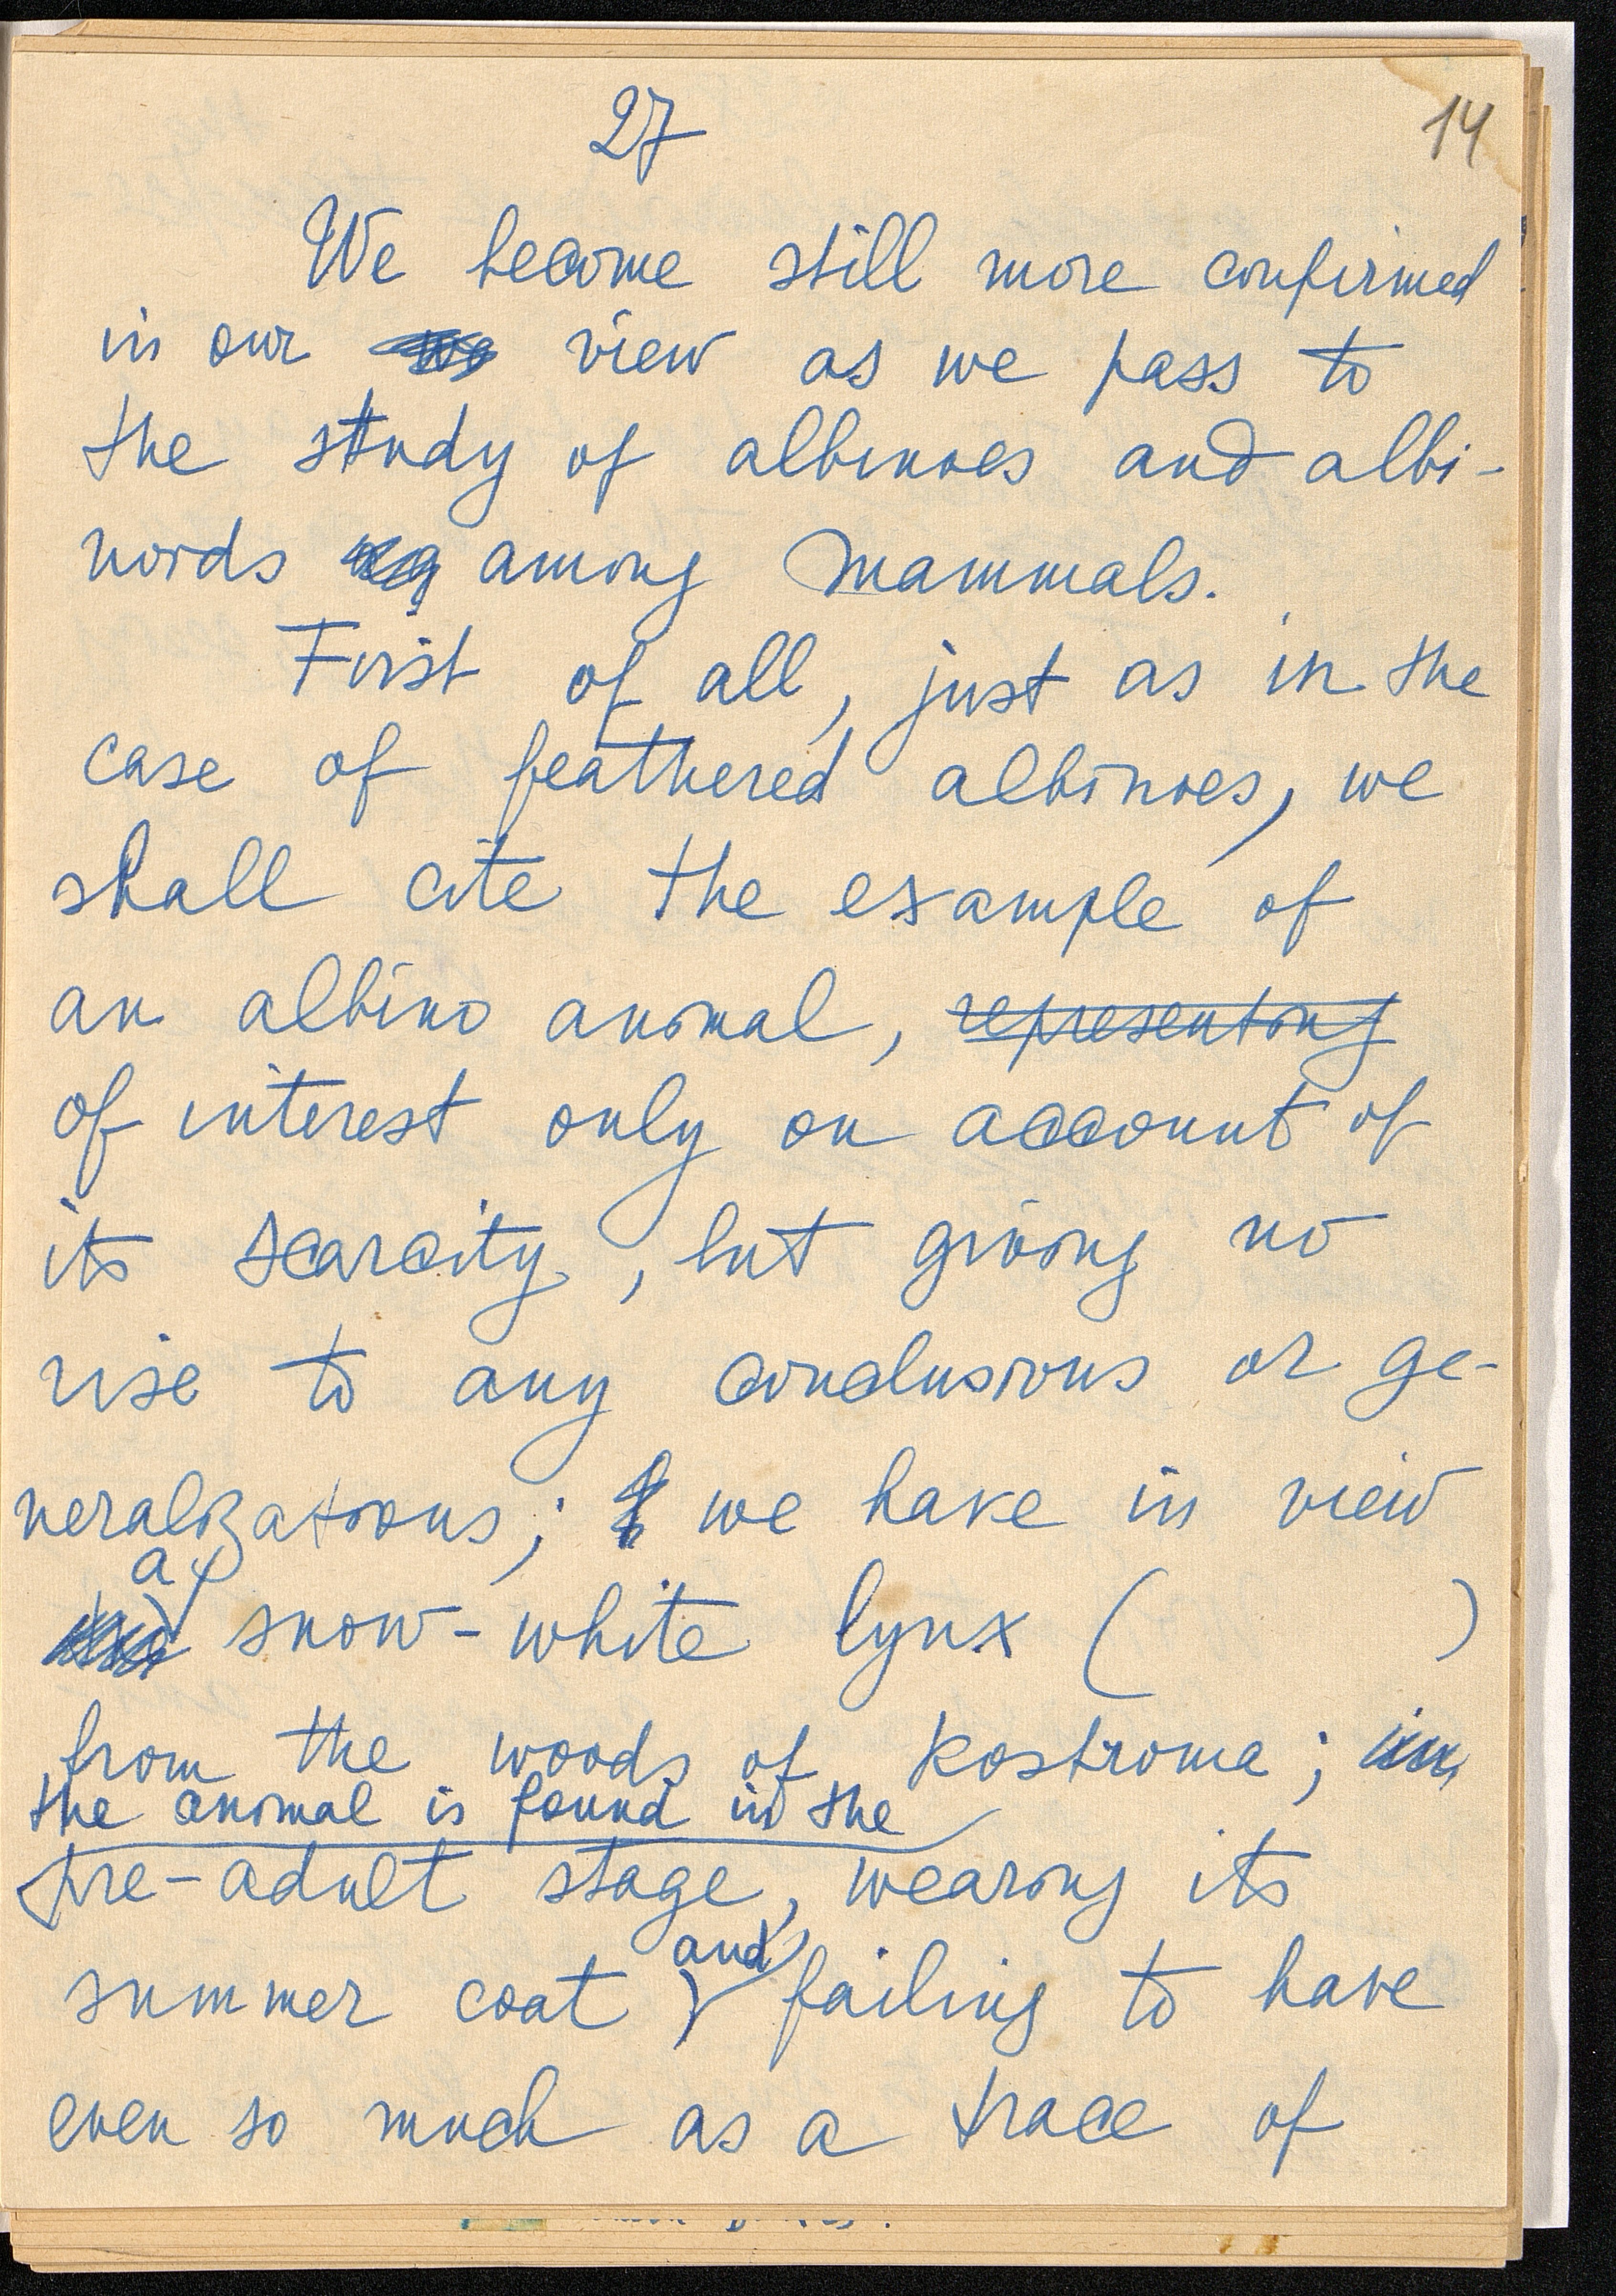 27
14
We become still more confirmed
in our view as we pass to
the study of albinoes and albi-
noids among Mammals.
First of all, just as in the
case of feathered albinoes, we
shall cite the example of
an albino animal, representing
of interest only on account of
its scarcity, but giving no
rise to any conclusions or ge-
neralizations; we have in view
a
snow-white lynx ( )
from the woods of Kostroma; in
the animal is found in the
pre-adult stage, wearing its
and
summer coat, failing to have
even so much as a trace of